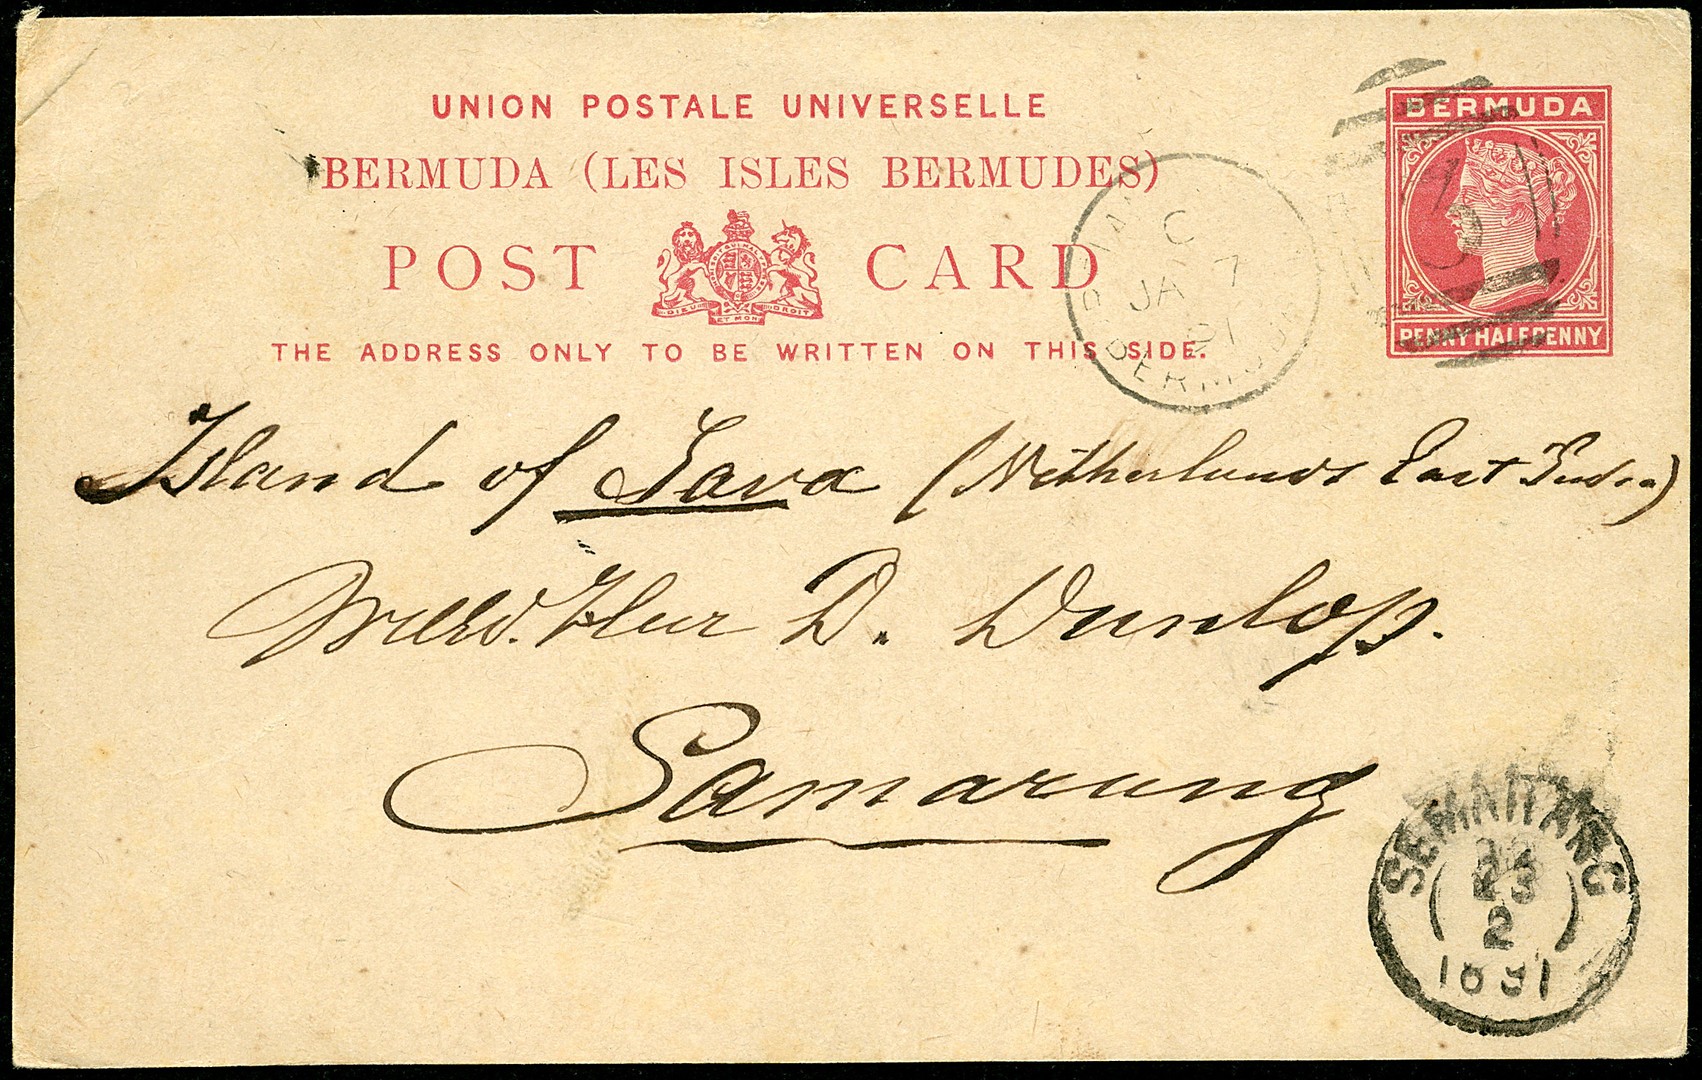 UNION POSTALE UNIVERSELLE
BERMUDA (LES ISLES BERMUDES)
POST CARD
DIEU ET MON DROIT
THE ADDRESS ONLY TO BE WRITTEN ON THIS SIDE.
BERMUDA
PENNY HALFPENNY
C
JA 7
91
BERMUDA
Island of Java (Netherlands East India)
D. Dunlop.
Samarang
SEMARANG
23
2
1891